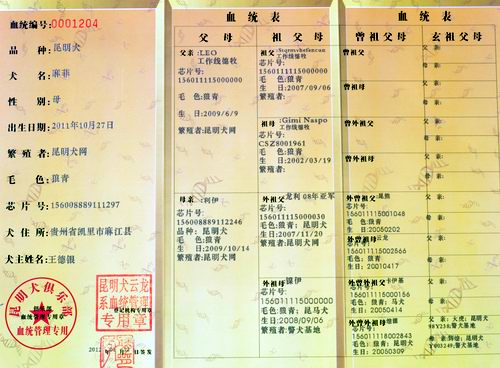 血统编号:0001204
品 种: 昆明犬
犬 名: 麻菲
性 别: 母
出生日期: 2011年10月27日
繁 殖 者: 昆明犬网
毛 色: 狼青
芯 片 号: 156008889111297
犬 住 所: 贵州省凯里市麻江县
犬主姓名: 王德银
昆明犬俱乐部
血统管理专用章
血统管理专用
昆明犬云龙
系血统管理
登记机构专用章
专用章
血 统 表
父 母
父亲:LEO
工作线德牧
芯片号:
156011115000000
毛 色: 狼青
生 日: 2009/6/9
繁殖者: 昆明犬网
母亲 : 利伊
芯片号:
156008889112246
品种: 昆明犬
毛 色: 狼青
生 日: 2009/10/14
繁殖者: 昆明犬网
祖 父 母
祖父:
工作线德牧
芯片号:
156011115000000
毛 色: 狼青
生 日: 2007/09/06
繁殖者:
祖母 :Gimi Naspo
工作线德牧
芯片号:
CSZ8001961
毛 色: 狼青
生 日: 2002/03/19
繁殖者:
外祖父: 龙利 08年亚军
芯片号:
156011115000030
毛 色: 狼青; 昆明犬
生 日: 2007/11/20
繁殖者: 昆明犬网
外祖母: 镤伊
芯片号:
156011115000000
毛 色: 狼青; 昆马犬
生 日: 2008/09/06
繁殖者: 警犬基地
血 统 表
曾祖父母
曾祖父
曾祖母
曾外祖父
曾外祖母
外曾祖父: 昆熊
芯片号:
156011115001048
毛 色: 狼青; 昆明犬
生日: 20050202
外曾祖母: 云龙
芯片号:
156011115002666
毛 色: 狼青
生日: 20010417
外曾外祖父: 卡伊基
芯片号:
156011115000156
毛 色: 狼青; 马犬
生日: 20050414
外曾外祖母:
芯片号:
156011118002843
毛 色: 狼青; 昆明犬
生日: 20050309
玄祖父母
父 亲:
母 亲:
父 亲:
母 亲:
父 亲:
母 亲:
父 亲:
母 亲:
父 亲:
母 亲:
父 亲:
母 亲:
父 亲:
母 亲:
父 亲: 大虎; 昆明犬
98Y238; 警犬基地
母 亲: 辉德; 昆明犬
Y003249; 警犬基地